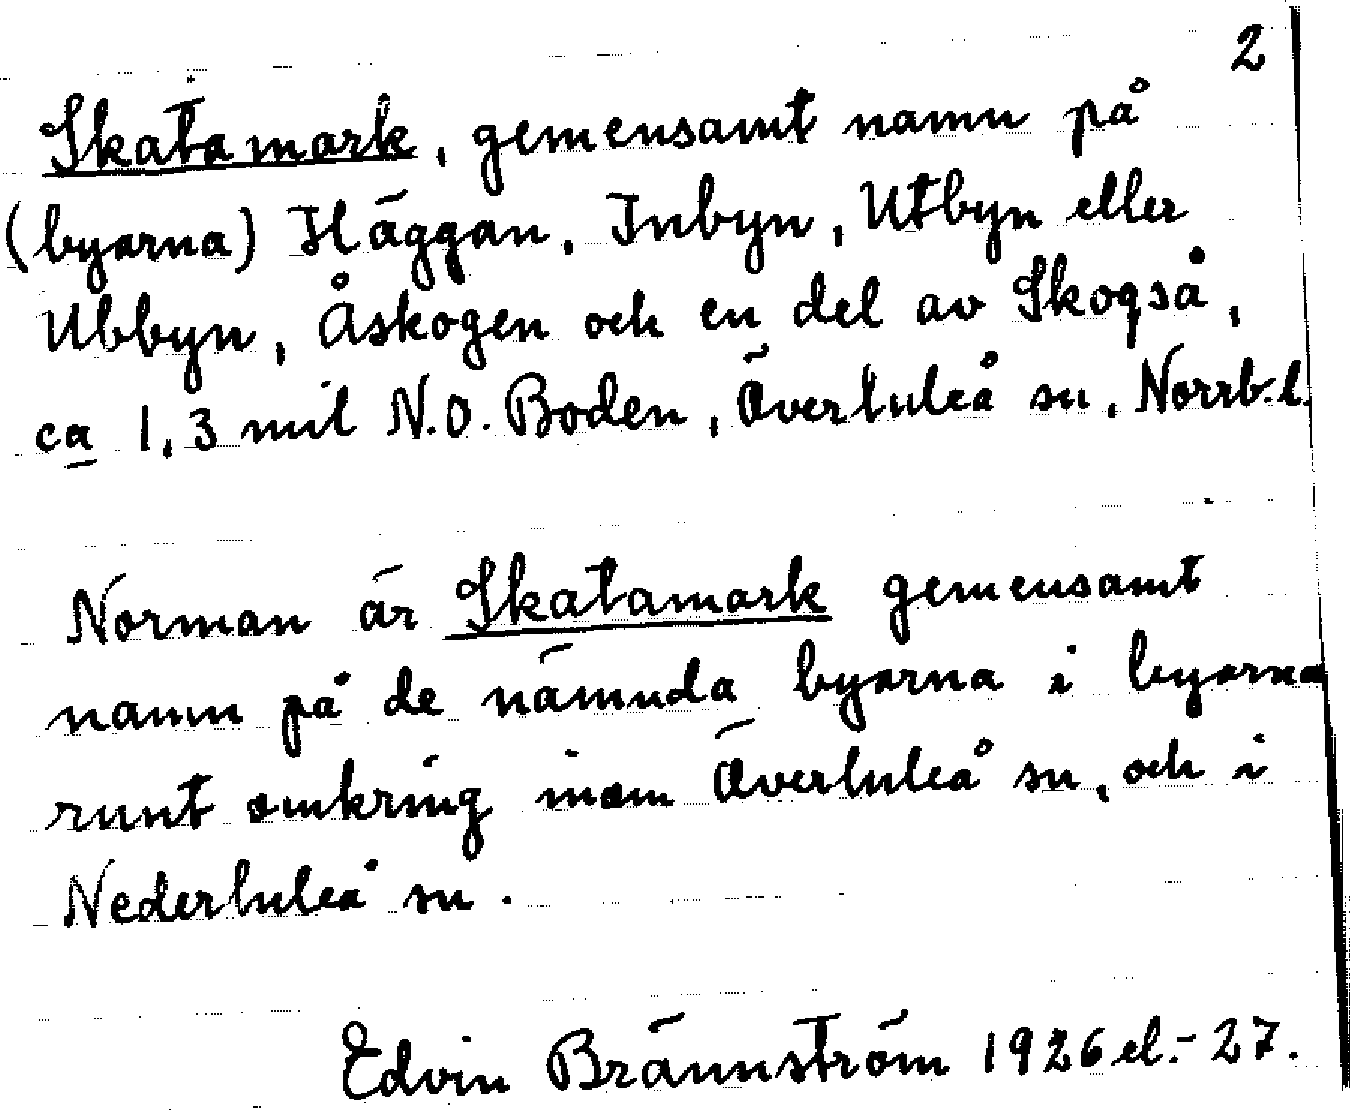 2
Skatamark, gemensamt namn på
(byarna) Häggan, Inbyn, Utbyn eller
Ubbyn, Åskogen och en del av Skogså,
ca 1,3 mil N.O. Boden, Överluleå sn, Norrb.l.
Norman är Skatamark gemensamt
namn på de nämnda byarna i byarna
runt omkring inom Överluleå sn, och i
Nederluleå sn.
Edvin Brännström 1926 el.-27.